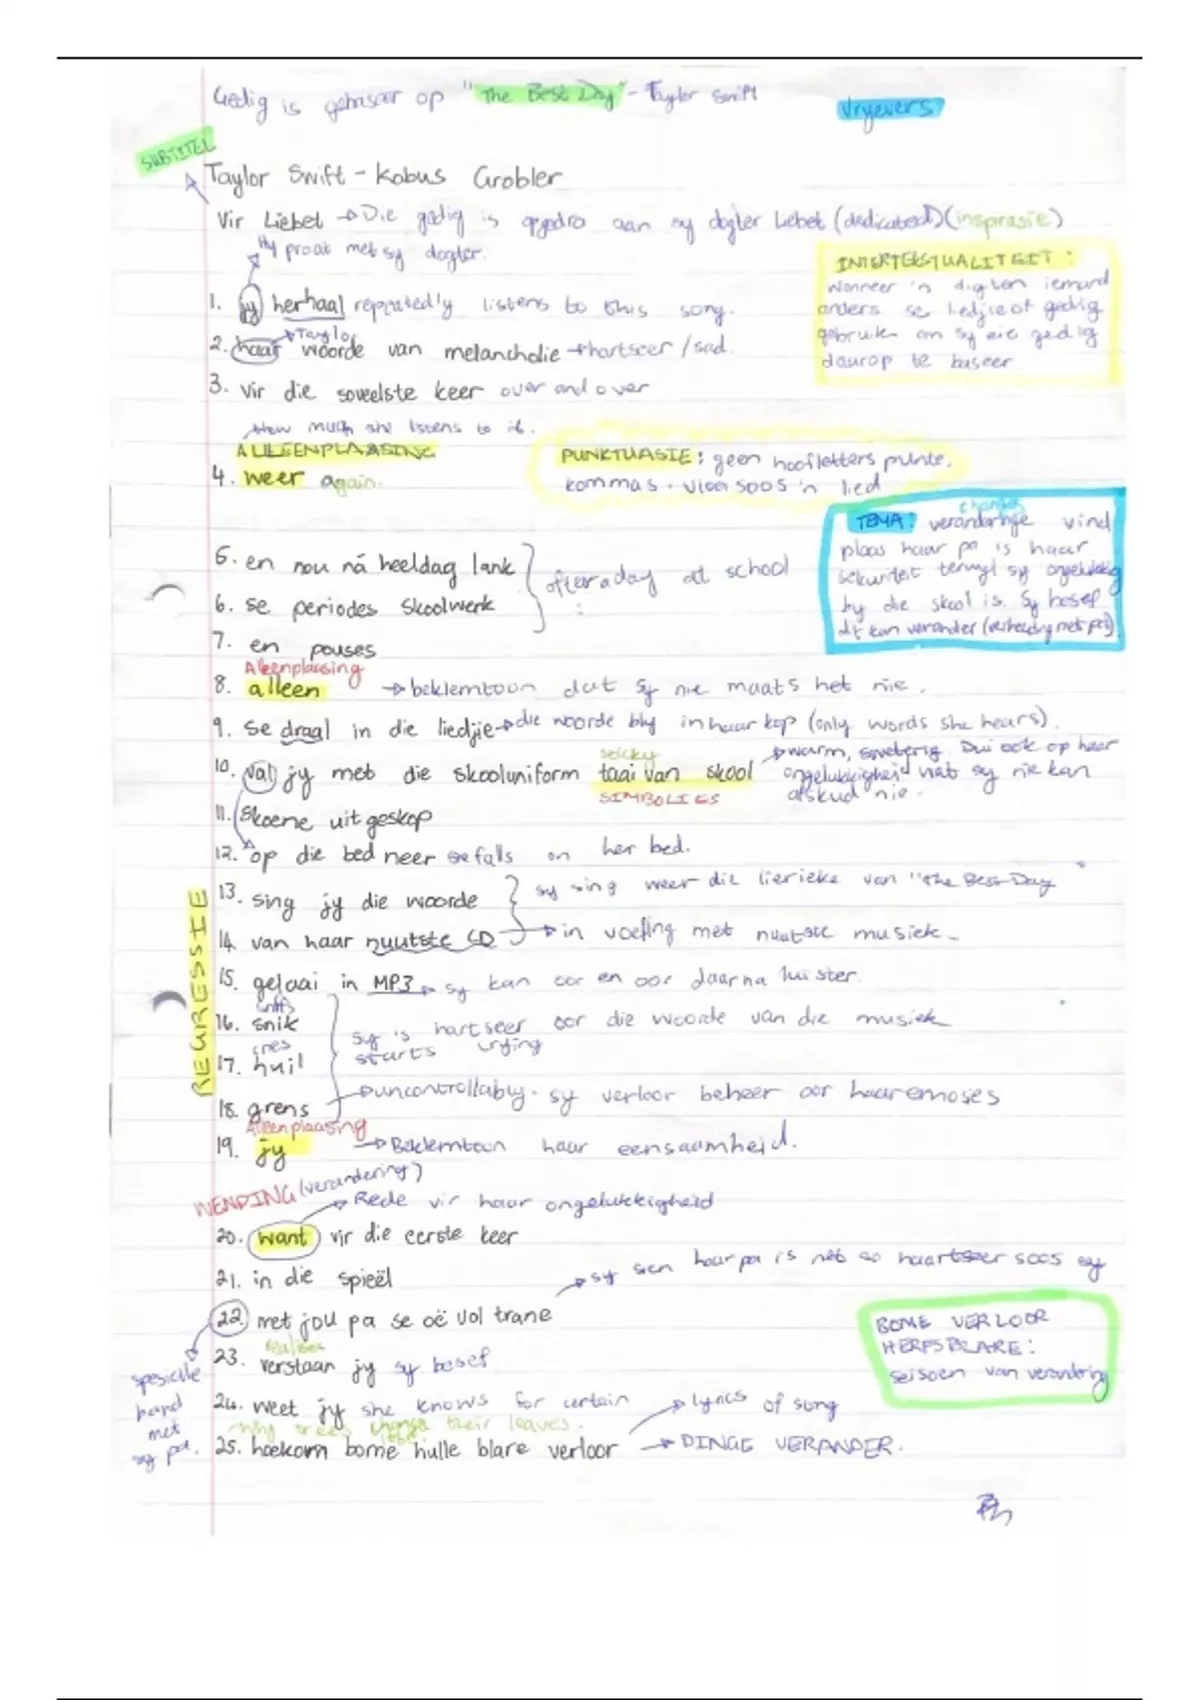 Gedig is gebaseer op "The Best Day" - Taylor Swift
Vryevers
SUBTITEL
Taylor Swift - Kobus Grobler
Vir Liebet → Die gedig is opgedra aan sy dogter Liebet (dedicated) (inspirasie)
Hy praat met sy dogter.
INTERTEKSTUALITEIT:
Wanneer 'n digter iemand
anders se liedjie of gedig
gebruik om sy eie gedig
daarop te baseer
1. jy herhaal repeatedly listens to this song.
Taylor
2. haar woorde van melancholie → hartseer / sad.
3. vir die soveelste keer over and over
How much she listens to it.
ALLEENPLAASING
4. weer again.
PUNKTUASIE: geen hoofletters punte,
kommas. vloei soos 'n lied
changes
TEMA: veranderinge vind
plaas haar pa is haar
sekuriteit terwyl sy ongelukkig
by die skool is. Sy besef
dit kan verander (verhouding met pa).
5. en nou ná heeldag lank
6. se periodes skoolwerk
after a day at school
7. en pouses
Alleenplaasing
8. alleen → beklemtoon dat sy nie maats het nie.
9. se draal in die liedjie → die woorde bly in haar kop (only words she hears).
sticky
10. val jy met die skooluniform taai van skool
SIMBOLIES
→ warm, sweterig. Dui ook op haar
ongelukkigheid wat sy nie kan
afskud nie.
11. skoene uitgeskop
12. op die bed neer se falls on her bed.
13. sing jy die woorde
sy sing weer die lierieke van "The Best Day"
14. van haar nuutste CD → in voeling met nuutste musiek.
15. gelaai in MP3 → sy kan oor en oor daarna luister.
REGRESSIE
sniffs
16. snik
sy is hartseer oor die woorde van die musiek
cries
starts crying
17. huil
18. grens
→ uncontrollably. sy verloor beheer oor haar emosies
Alleenplaasing
19. jy → Beklemtoon haar eensaamheid.
WENDING (verandering)
→ Rede vir haar ongelukkigheid
20. want vir die eerste keer
21. in die spieël
→ sy sien haar pa is net so haartseer soos sy
22. met jou pa se oë vol trane
spesiale
band
met
sy pa.
realises
23. verstaan jy sy besef
24. weet jy she knows for certain
→ lyrics of song
why trees change their leaves.
25. hoekom bome hulle blare verloor → DINGE VERANDER.
BOME VERLOOR
HERFSBLARE:
seisoen van verandring